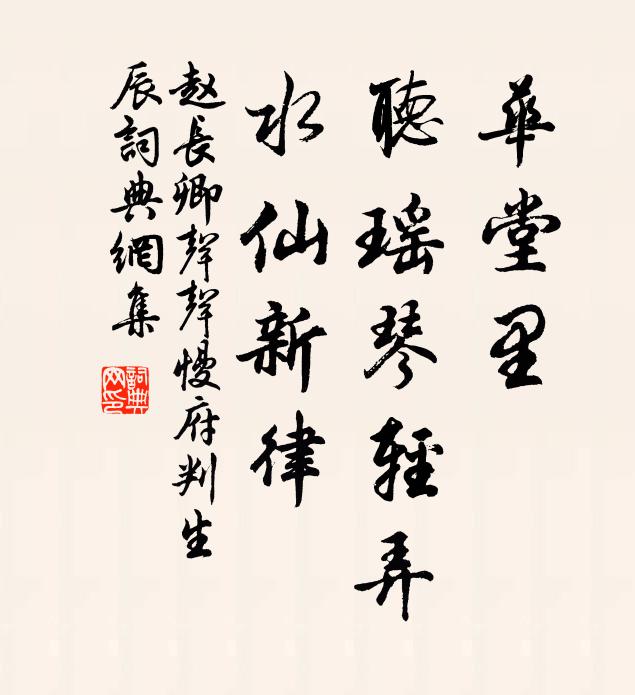 華堂里
聽瑶琴輕弄
水仙新律
赵長卿聲聲慢府判生
辰詞典網集
詞典网印